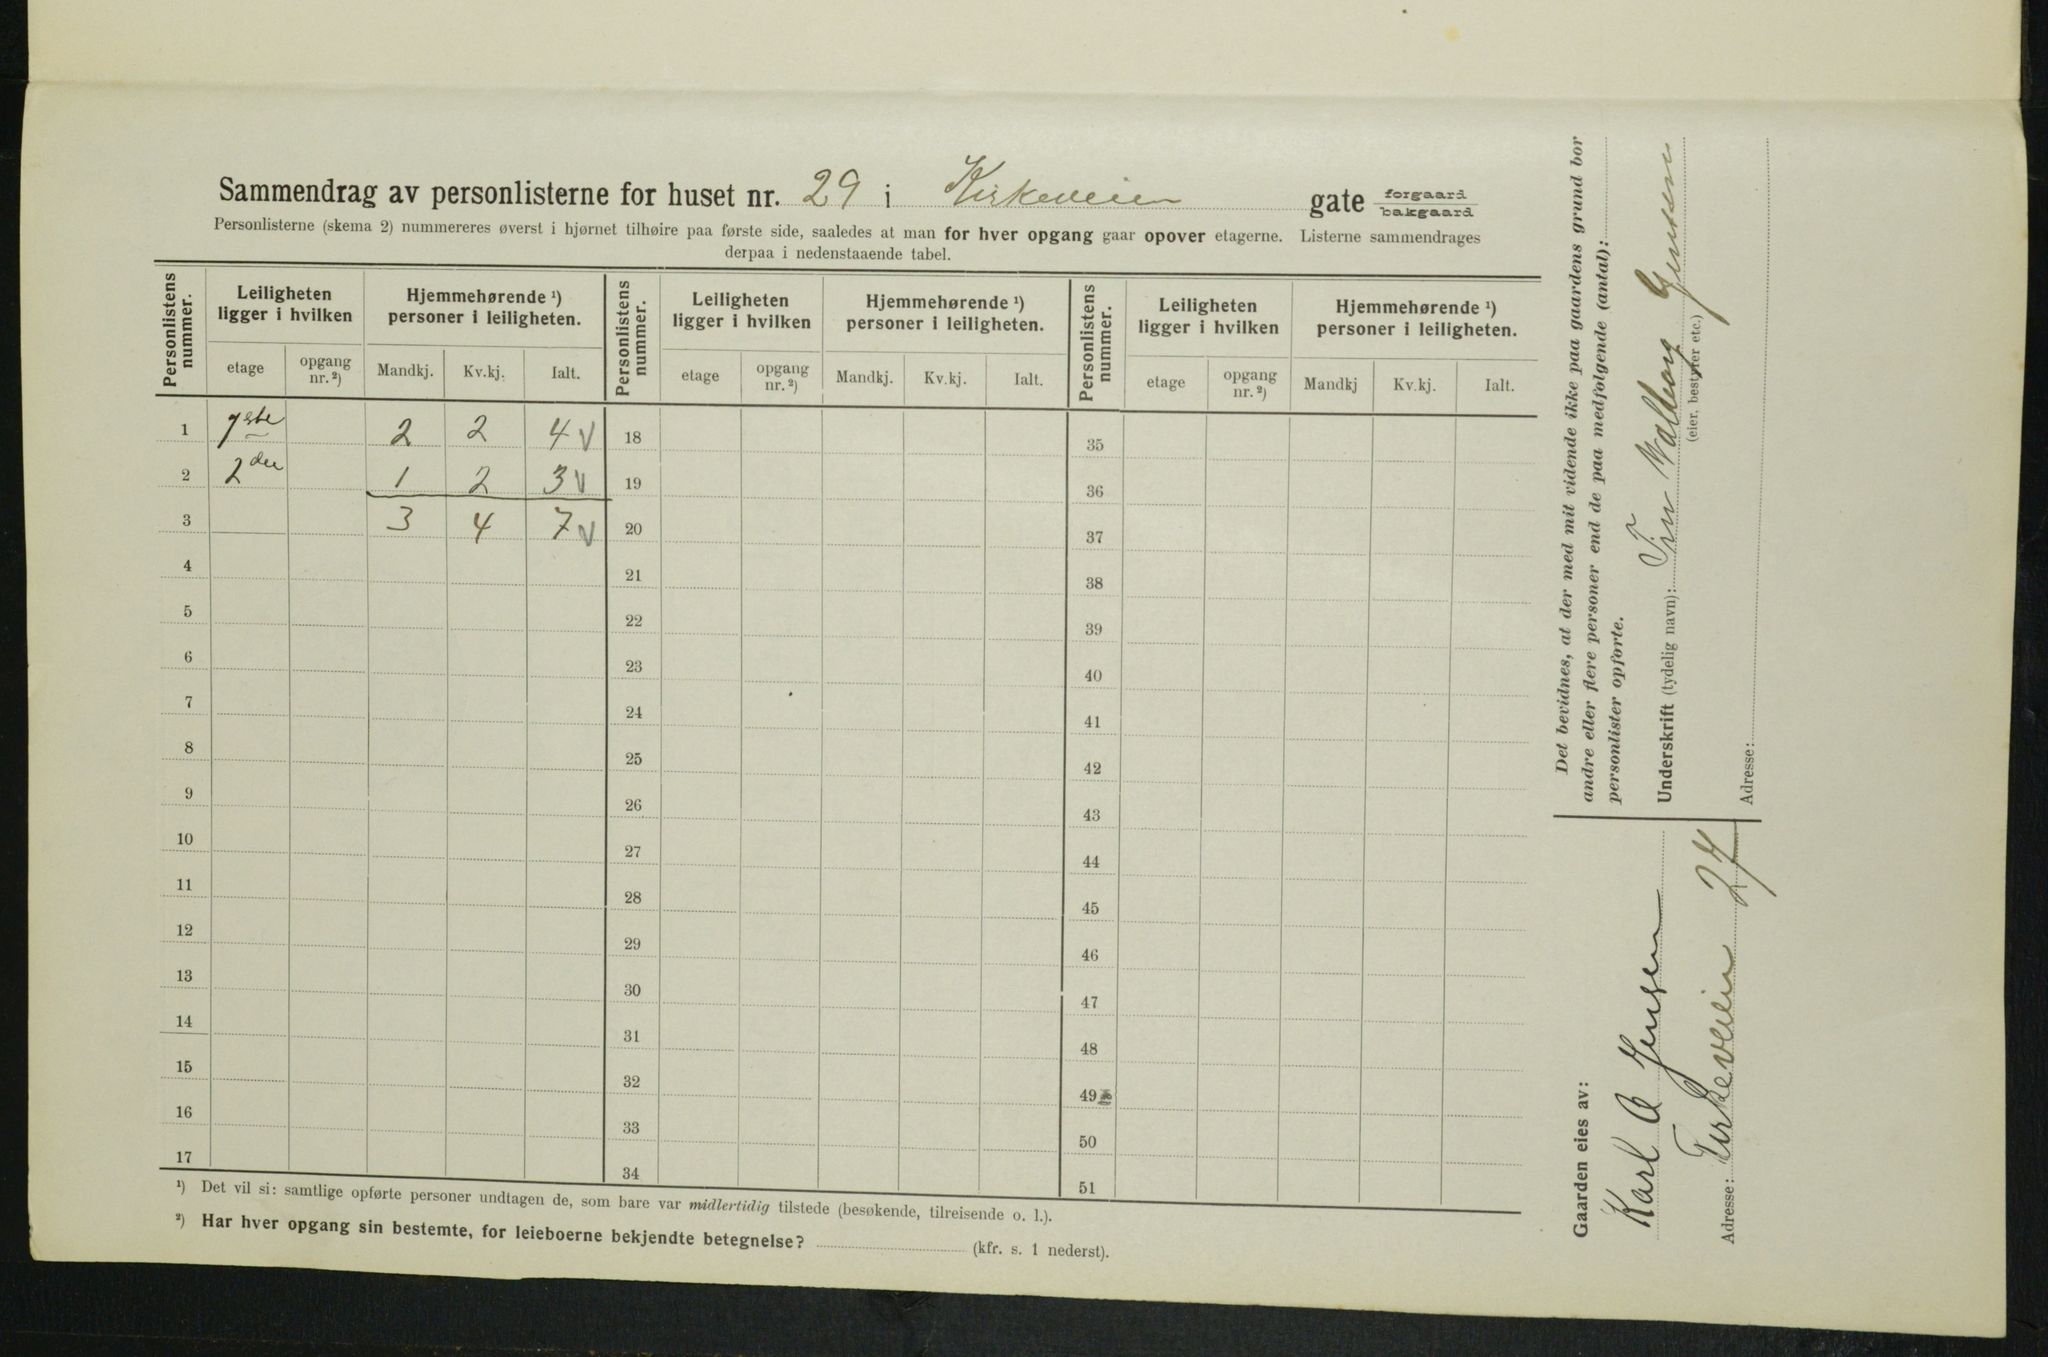 Sammendrag av personlisterne for huset nr. 29 i Kirkeveien gate forgaard bakgaard
Personlisterne (skema 2) nummereres øverst i hjørnet tilhøire paa første side, saaledes at man for hver opgang gaar opover etagerne. Listerne sammendrages
derpaa i nedenstaaende tabel.
Personlistens nummer. Leiligheten ligger i hvilken Hjemmehørende ¹) personer i leiligheten. Personlistens nummer. Leiligheten ligger i hvilken Hjemmehørende ¹) personer i leiligheten. Personlistens nummer. Leiligheten ligger i hvilken Hjemmehørende ¹) personer i leiligheten.
etage opgang nr. ²) Mandkj. Kv.kj. Ialt. etage opgang nr. ²) Mandkj. Kv.kj. Ialt. etage opgang nr. ²) Mandkj Kv.kj. Ialt.
1 1ste 2 2 4 V 18 35
2 2den 1 2 3 V 19 36
3 3 4 7 V 20 37
4 21 38
5 22 39
6 23 40
7 24 41
8 25 42
9 26 43
10 27 44
11 28 45
12 29 46
13 30 47
14 31 48
15 32 49
16 33 50
17 34 51
¹) Det vil si: samtlige opførte personer undtagen de, som bare var midlertidig tilstede (besøkende, tilreisende o. l.).
²) Har hver opgang sin bestemte, for leieboerne bekjendte betegnelse? (kfr. s. 1 nederst).
Det bevidnes, at der med mit vidende ikke paa gaardens grund bor
andre eller flere personer end de paa medfolgende (antal):
personlister opforte.
Underskrift (tydelig navn): Valborg Jensen
(eier, bestyrer etc.)
Adresse:
Gaarden eies av:
Karl A Jensen
Adresse: Kirkeveien 27